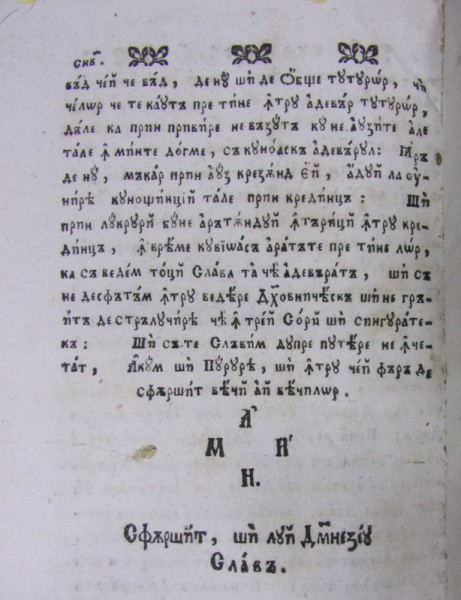 сив҃.
вѫд чей че вѫд, де ну ши де Обще тутурѡр, чи
челѡр че те каутъ пре тине ꙟтру адевър тутурѡр,
дъле ка прин привире невъзутъ ку неаузите але
тале ꙟминте догме, съ куноаскъ адевърул: Иръ
де ну, мъкар прин ауз крезѫнд Ей, адуй ла оу
нире куношинций тале прин крединцъ: Ши
прин лукрури буне арътѫндуй ꙟтърици ꙟтру кре
динцъ, ꙟвреме кувиоасъ аратъте пре тине лѡр,
ка съ ведем тоци Слава та чѣ адевъратъ, ши съ
не десфътъм ꙟтру ведѣре Дх҃овничѣскъ шине гръ
ит де стрълучире чѣ ꙟтрей Сори ши сингурате
къ: Ши съте Слъвим дупре путѣре не ꙟче
тат, Акум ши Пурурѣ, ши ꙟтру чей фъръ де
сфѫршит вечи ай вечилѡр.
А
М И
Н.
Сфѫршит, ши луй Дм҃незеу
Славъ.